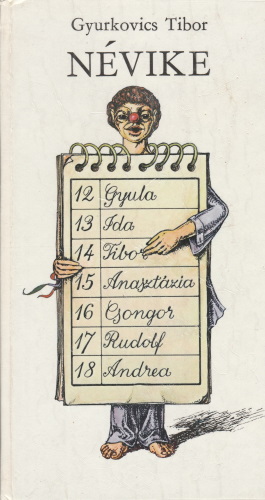 Gyurkovics Tibor
NÉVIKE
12 Gyula
13 Ida
14 Tibor
15 Anasztázia
16 Csongor
17 Rudolf
18 Andrea